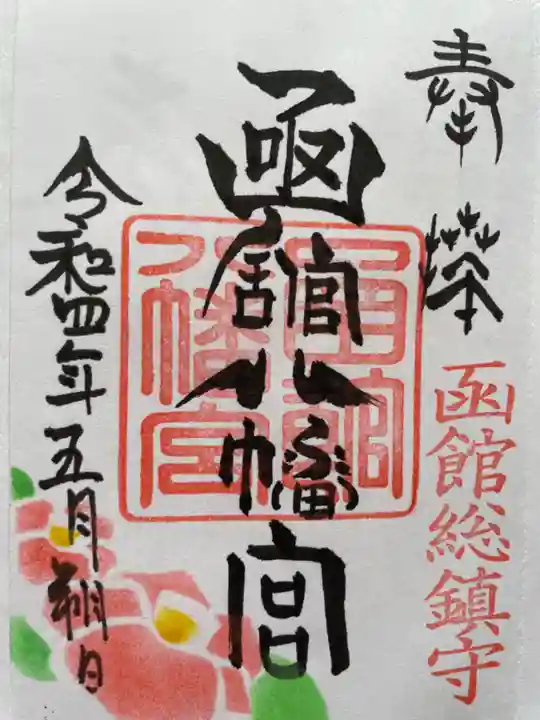 奉拝
函館総鎮守
函館八幡宮
函館八幡宮
令和四年五月朔日